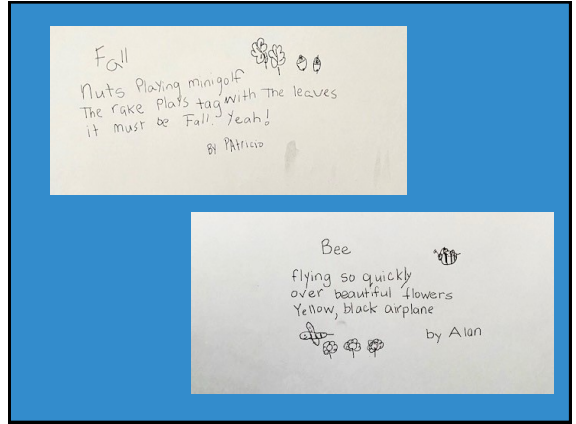 Fall
Nuts Playing minigolf
The rake Plays tag with The leaves
it must be Fall. Yeah!
By PAtricio
Bee
flying so quickly
over beautiful flowers
Yellow, black airplane
by Alan